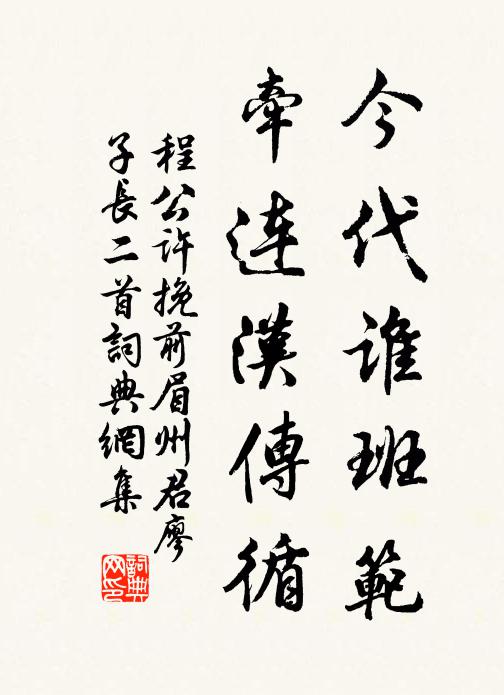 今代誰班範
牽連漢傳循
程公許挽前眉州君廖
子長二首詞典網集
詞典网印